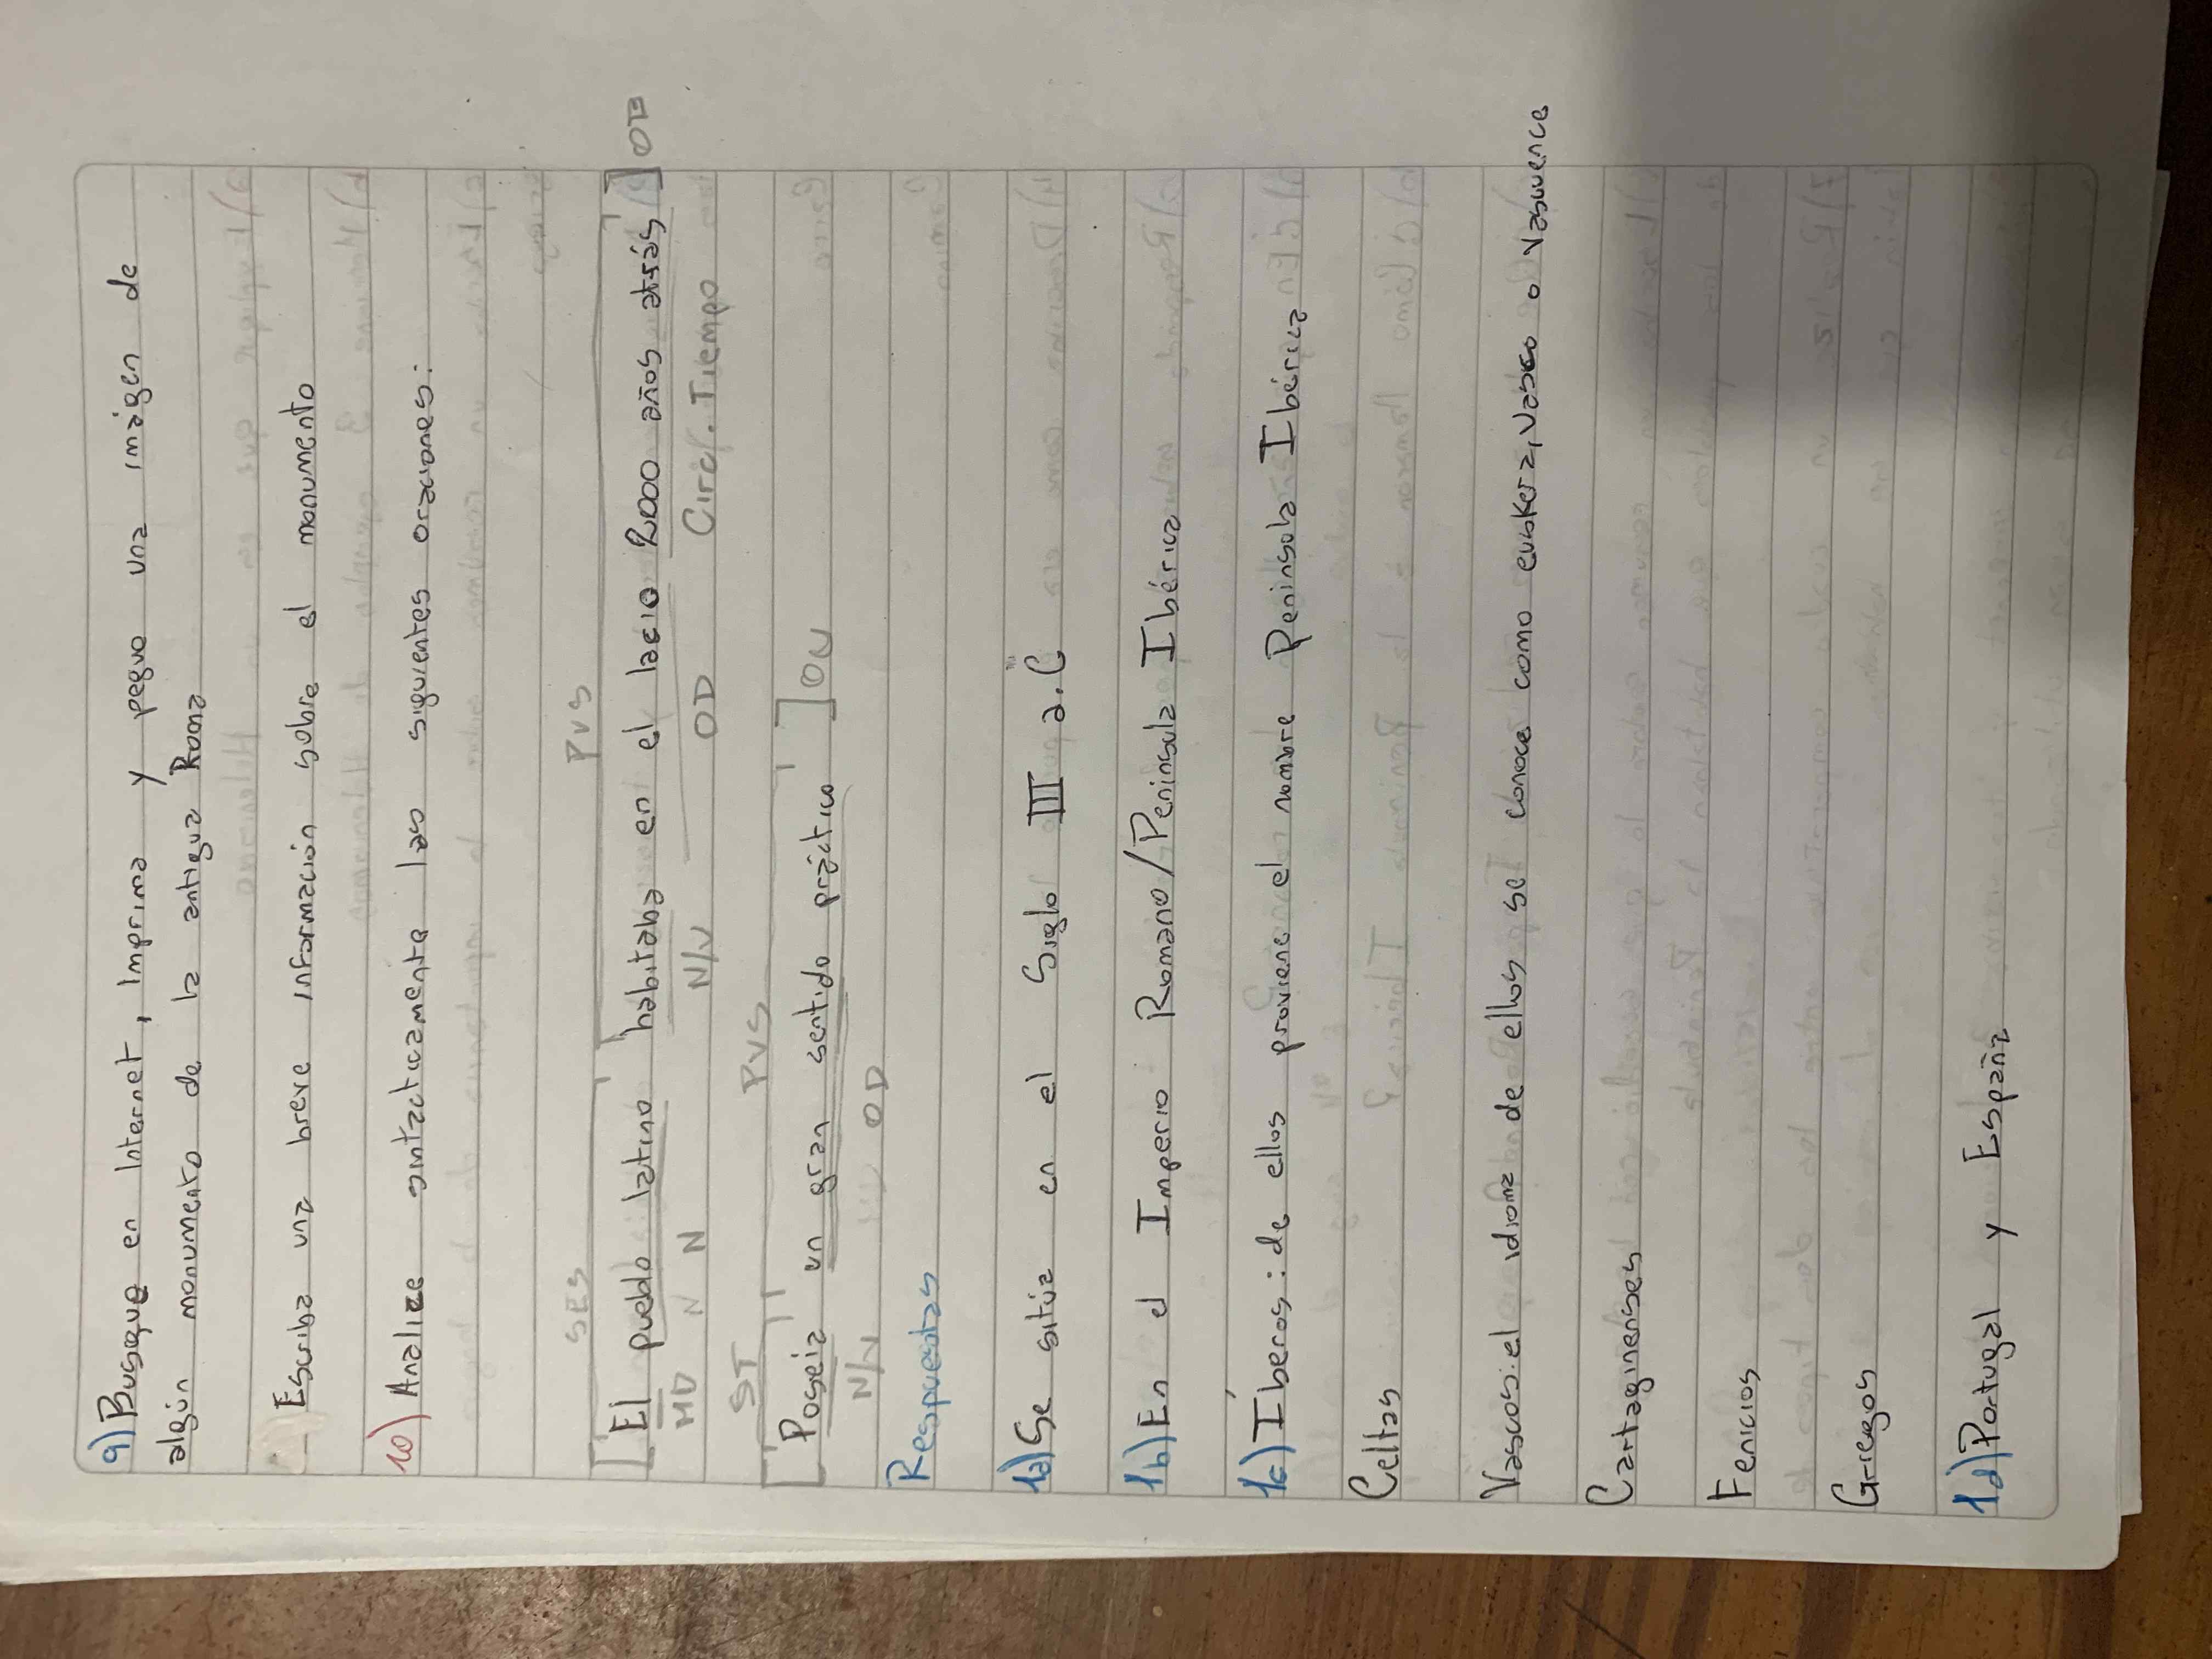 9) Busque en Internet, Imprima y pegue una imágen de
algún monumento de la antigua Roma
Escriba una breve información sobre el monumento
10) Analice sintácticamente las siguientes oraciones:
SES PVS
[El pueblo latino habitaba en el lacio 2000 años atrás] OB
MD N N N/V OD Circ. Tiempo
ST PVS
[Poseía un gran sentido práctico] OU
N/V OD
Respuestas
1a) Se sitúa en el Siglo III a.C
1b) En el Imperio Romano/Peninsula Ibérica
1c) Íberos: de ellos proviene el nombre Peninsula Ibérica
Celtas
Vascos: el idioma de ellos se conoce como euskera, vasco o vascuence
Cartaginenses
Fenicios
Griegos
1d) Portugal y España